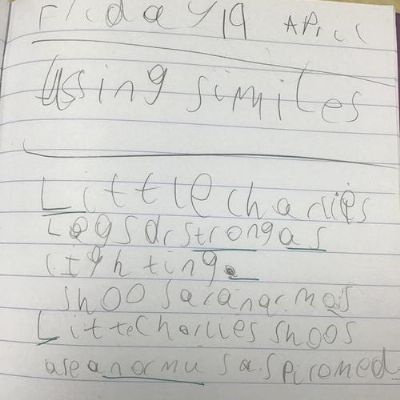 Friday 19 April
Using similes
Little charlies
Legs dr strong as
lightning.
shoos ar anarmas
Little charlies shoos
are anormu s as piromed